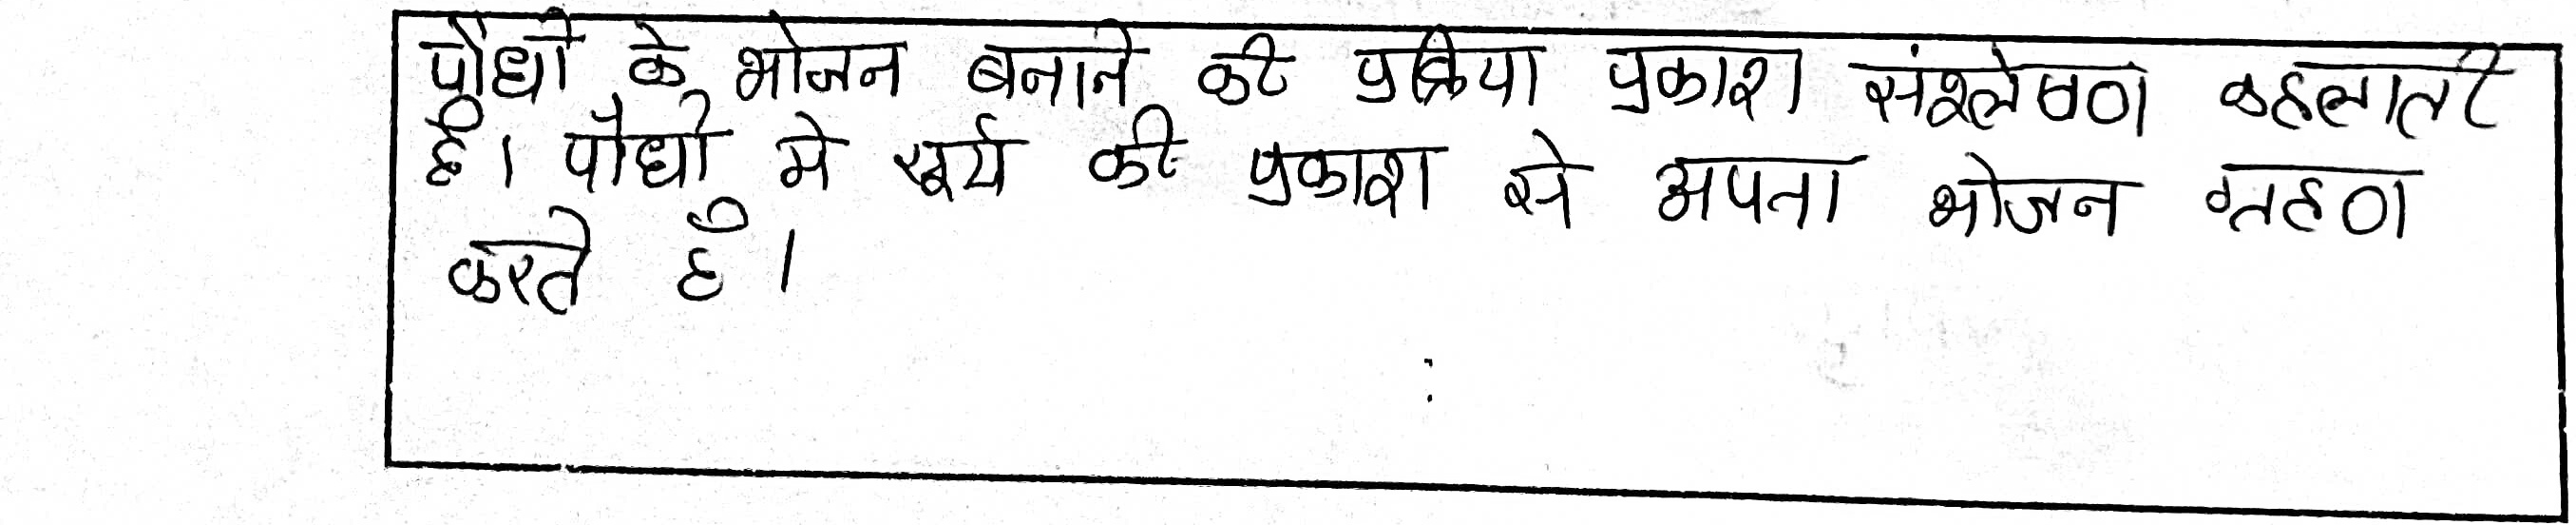 पौधों के भोजन बनाने की प्रक्रिया प्रकाश संश्लेषण कहलाती
है। पौधों मे सूर्य की प्रकाश से अपना भोजन ग्रहण
करते हैं।